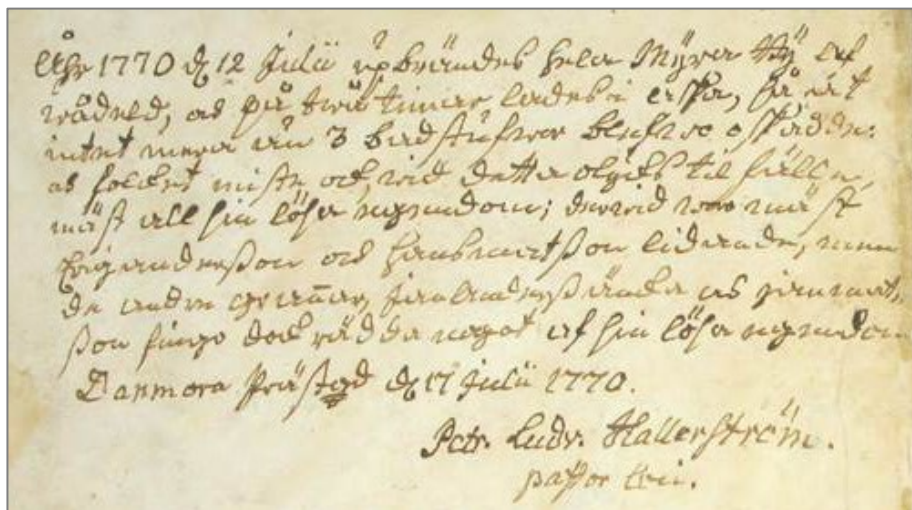 Åhr 1770 d 12 Julii upbrändes hela Myra by af
wådeld, och på twå timar lades i aska, så at
intet mera än 3 badstufwor blefwo oskadde:
och folcket miste ock, wid detta olycks tilfälle,
mäst all sin lösa egendom; derwid woro mäst
Erich andersson och Hans matsson lidande, men
de andra grannar, Jan anders änka och Jan mats-
son fingo dock rädda något af sin lösa egendom.
Danmora Prästgd d 17 Julii 1770.
Petr. Ludv. Hallerström.
pastor